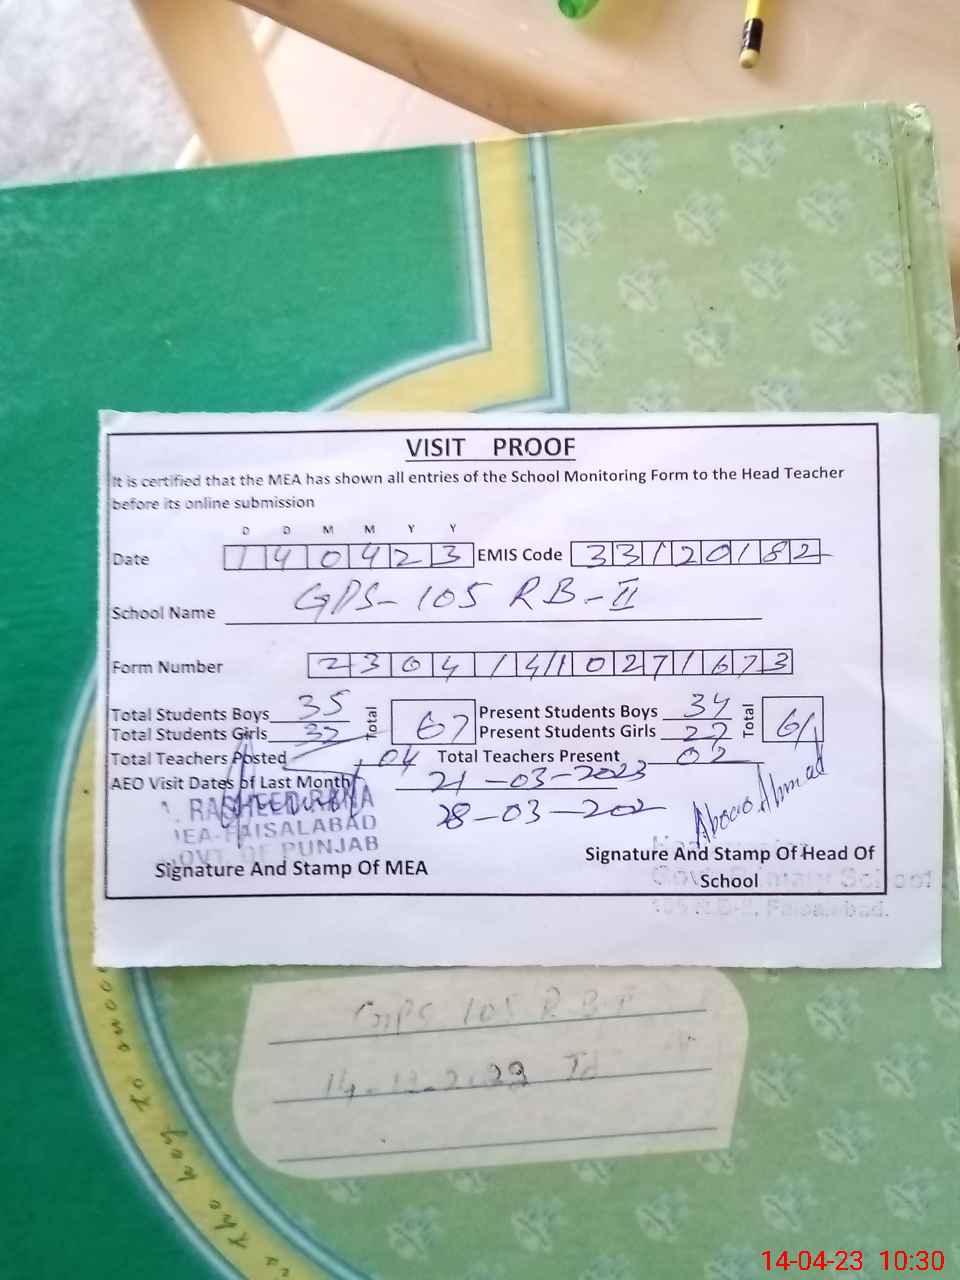 VISIT PROOF
It is certified that the MEA has shown all entries of the School Monitoring Form to the Head Teacher
before its online submission
D D M M Y Y
Date 1 4 0 4 2 3 EMIS Code 3 3 1 2 0 1 8 2
School Name GPS-105 RB-II
Form Number 2 3 0 4 1 4 1 0 2 7 1 6 7 3
Total Students Boys 35 Total 67 Present Students Boys 34 Total 61
Total Students Girls 32 Present Students Girls 27
Total Teachers Posted 04 Total Teachers Present 02
AEO Visit Dates of Last Month 21-03-2023
28-03-202
RASHEED
MEA-FAISALABAD
GOVT OF PUNJAB
Ahmad
Signature And Stamp Of MEA
Signature And Stamp Of Head Of
School
Govt. Primary School
105 R.B-II, Faisalabad.
GPS 105 RB-II
is the key to
14-04-23 10:30